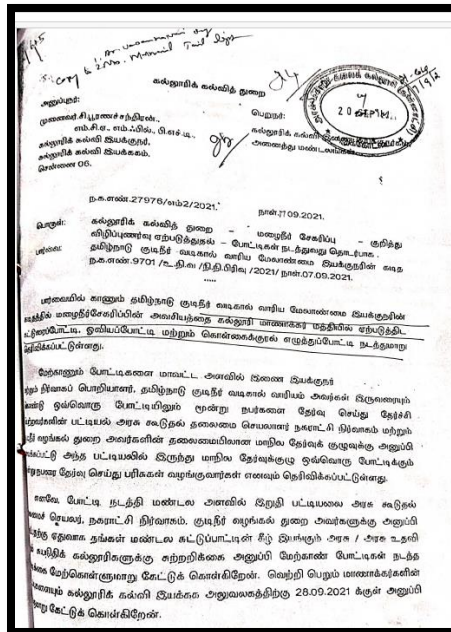 கல்லூரிக் கல்வித் துறை
அனுப்புநர்
முனைவர்.சி.பூரணச்சந்திரன்.,
எம்.சி.ஏ., எம்.ஃபில்., பி.எச்.டி.,
கல்லூரிக் கல்வி இயக்குநர்,
கல்லூரிக் கல்வி இயக்ககம்,
சென்னை 06.
பெறுநர்
கல்லூரிக் கல்வி
அனைத்து மண்டலங்கள்
20 SEP
ந.க.எண்.27976/எம்2/2021. நாள். 09.2021.
பொருள்: கல்லூரிக் கல்வித் துறை – மழைநீர் சேகரிப்பு – குறித்து
விழிப்புணர்வு ஏற்படுத்துதல் – போட்டிகள் நடத்துவது தொடர்பாக.
பார்வை: தமிழ்நாடு குடிநீர் வடிகால் வாரிய மேலாண்மை இயக்குநரின் கடித
ந.க.எண்.9701 /உ.தி.வ /நி.தி.பிரிவு /2021/ நாள்.07.09.2021.
*****
பார்வையில் காணும் தமிழ்நாடு குடிநீர் வடிகால் வாரிய மேலாண்மை இயக்குநரின்
மழைநீர்சேகரிப்பின் அவசியத்தை கல்லூரி மாணாக்கர் மத்தியில் ஏற்படுத்திட
ஓவியப்போட்டி மற்றும் கொள்கைக்குரல் எழுத்துப்போட்டி நடத்துமாறு
மேற்காணும் போட்டிகளை மாவட்ட அளவில் இணை இயக்குநர்
நிர்வாகப் பொறியாளர், தமிழ்நாடு குடிநீர் வடிகால் வாரியம் அவர்கள் இருவரையும்
ஒவ்வொரு போட்டியிலும் மூன்று நபர்களை தேர்வு செய்து தேர்ச்சி
பட்டியல் அரசு கூடுதல் தலைமை செயலாளர் நகராட்சி நிர்வாகம் மற்றும்
வழங்கல் துறை அவர்களின் தலைமையிலான மாநில தேர்வுக் குழுவுக்கு அனுப்பி
அந்த பட்டியலில் இருந்து மாநில தேர்வுக்குழு ஒவ்வொரு போட்டிக்கும்
தேர்வு செய்து பரிசுகள் வழங்குவார்கள் எனவும் தெரிவிக்கப்பட்டுள்ளது.
எனவே, போட்டி நடத்தி மண்டல அளவில் இறுதி பட்டியலை அரசு கூடுதல்
செயலர், நகராட்சி நிர்வாகம், குடிநீர் வழங்கல் துறை அவர்களுக்கு அனுப்பி
ஏதுவாக தங்கள் மண்டல கட்டுப்பாட்டின் கீழ் இயங்கும் அரசு / அரசு உதவி
கல்லூரிகளுக்கு சுற்றறிக்கை அனுப்பி மேற்காண் போட்டிகள் நடத்த
மேற்கொள்ளுமாறு கேட்டுக் கொள்கிறேன். வெற்றி பெறும் மாணாக்கர்களின்
கல்லூரிக் கல்வி இயக்கக அலுவலகத்திற்கு 28.09.2021 க்குள் அனுப்பி
கேட்டுக் கொள்கிறேன்.